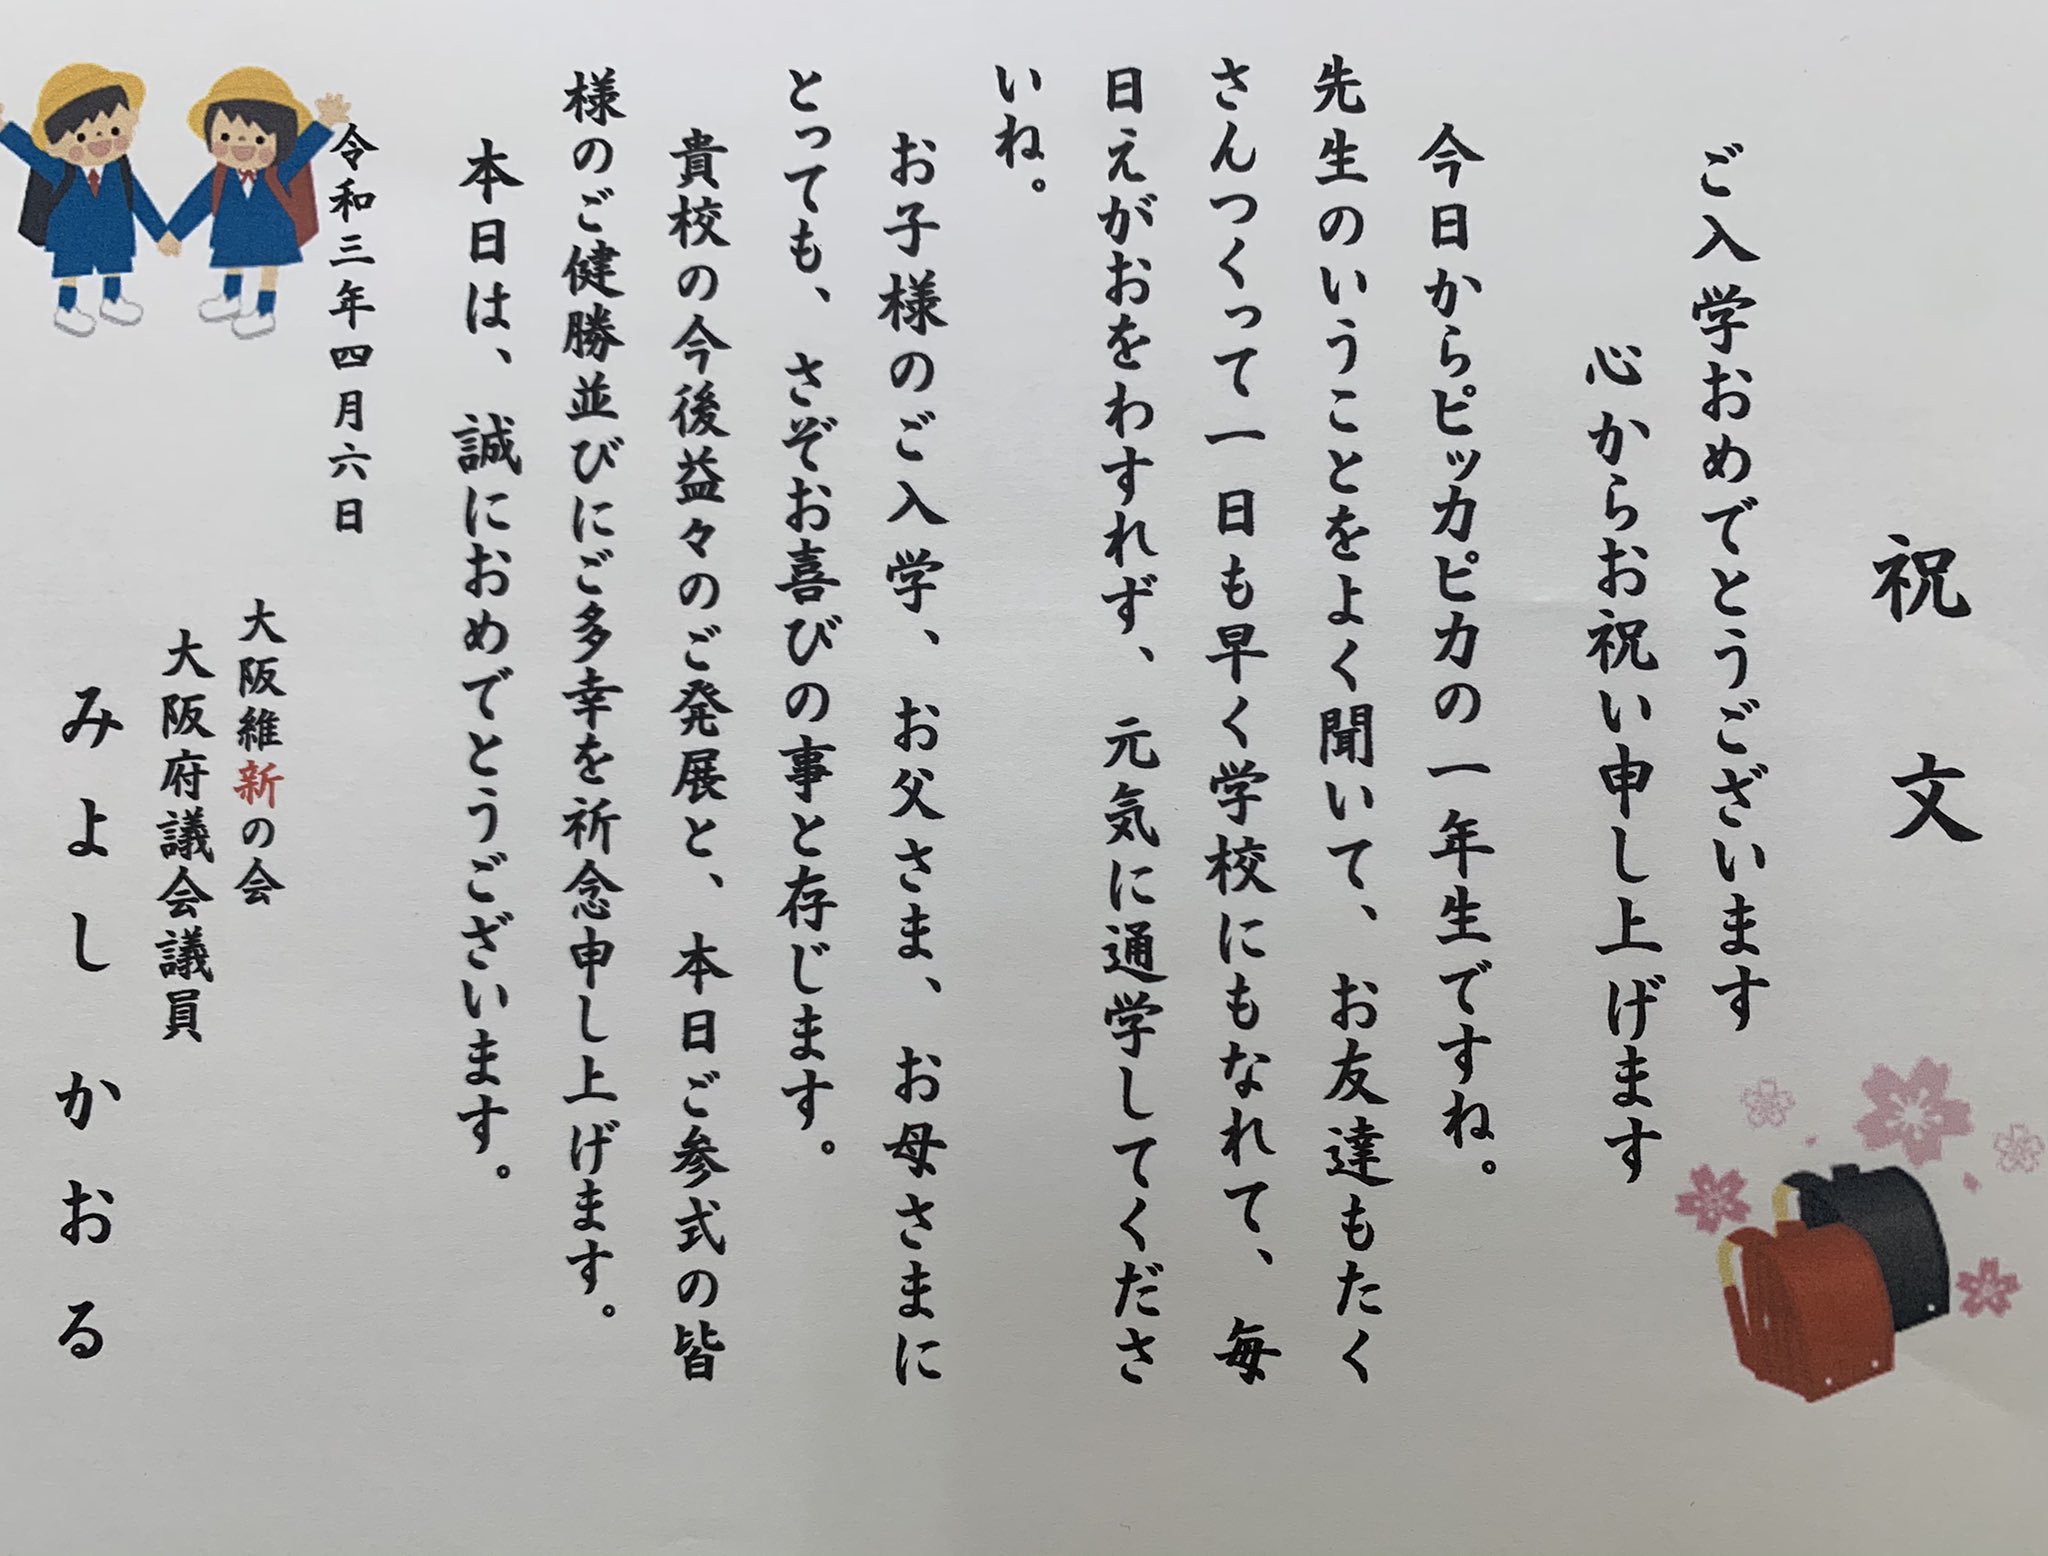 祝文
ご入学おめでとうございます
心からお祝い申し上げます
今日からピッカピカの一年生ですね。
先生のいうことをよく聞いて、お友達もたく
さんつくって一日も早く学校にもなれて、毎
日えがおをわすれず、元気に通学してくださ
いね。
お子様のご入学、お父さま、お母さまに
とっても、さぞお喜びの事と存じます。
貴校の今後益々のご発展と、本日ご参式の皆
様のご健勝並びにご多幸を祈念申し上げます。
本日は、誠におめでとうございます。
令和三年四月六日
大阪維新の会
大阪府議会議員
みよしかおる